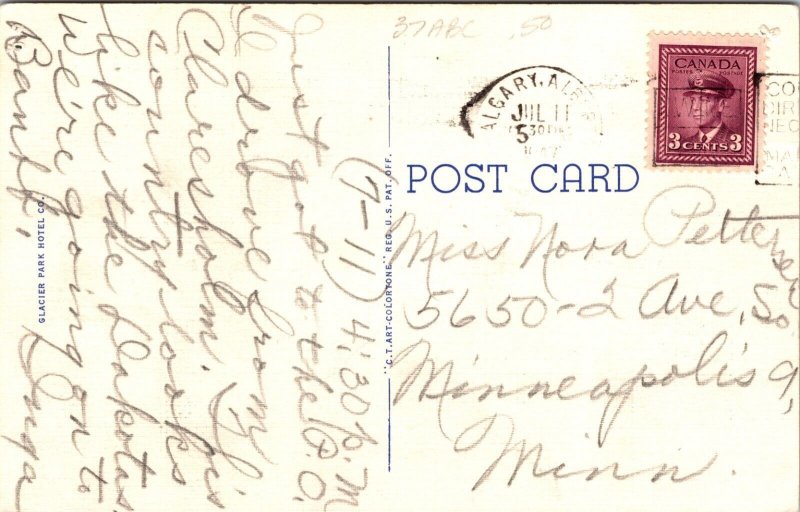 37ABC .50
CALGARY, AL
JUL 11
5 30 PM
CANADA
POSTES POSTAGE
3 CENTS 3
POST CARD
Miss Nora Pettersen
5650-2 Ave, So.
Minneapolis 9,
Minn.
(7-11) 4:30 P.M
Just got to the P.O.
& drove from
Claresholm. This
country looks
like the Dakotas
We're going on to
Banff,
Inga
GLACIER PARK HOTEL CO.
"C.T. ART-COLORTONE" REG. U.S. PAT. OFF.